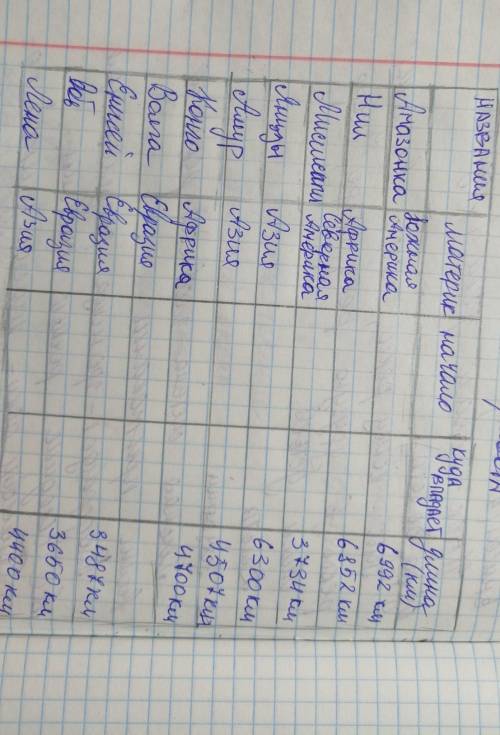 НАЗВАНИЯ материк начало куда впадает длина (км)
Амазонка Южная Америка 6992 км
Нил Африка 6852 км
Северная Америка 3734 км
Янцзы Азия 6300 км
Амур Азия 4507 км
Конго Африка 4700 км
Волга Евразия
Енисей Евразия 3487 км
Обь Евразия 3650 км
Лена Азия 4400 км